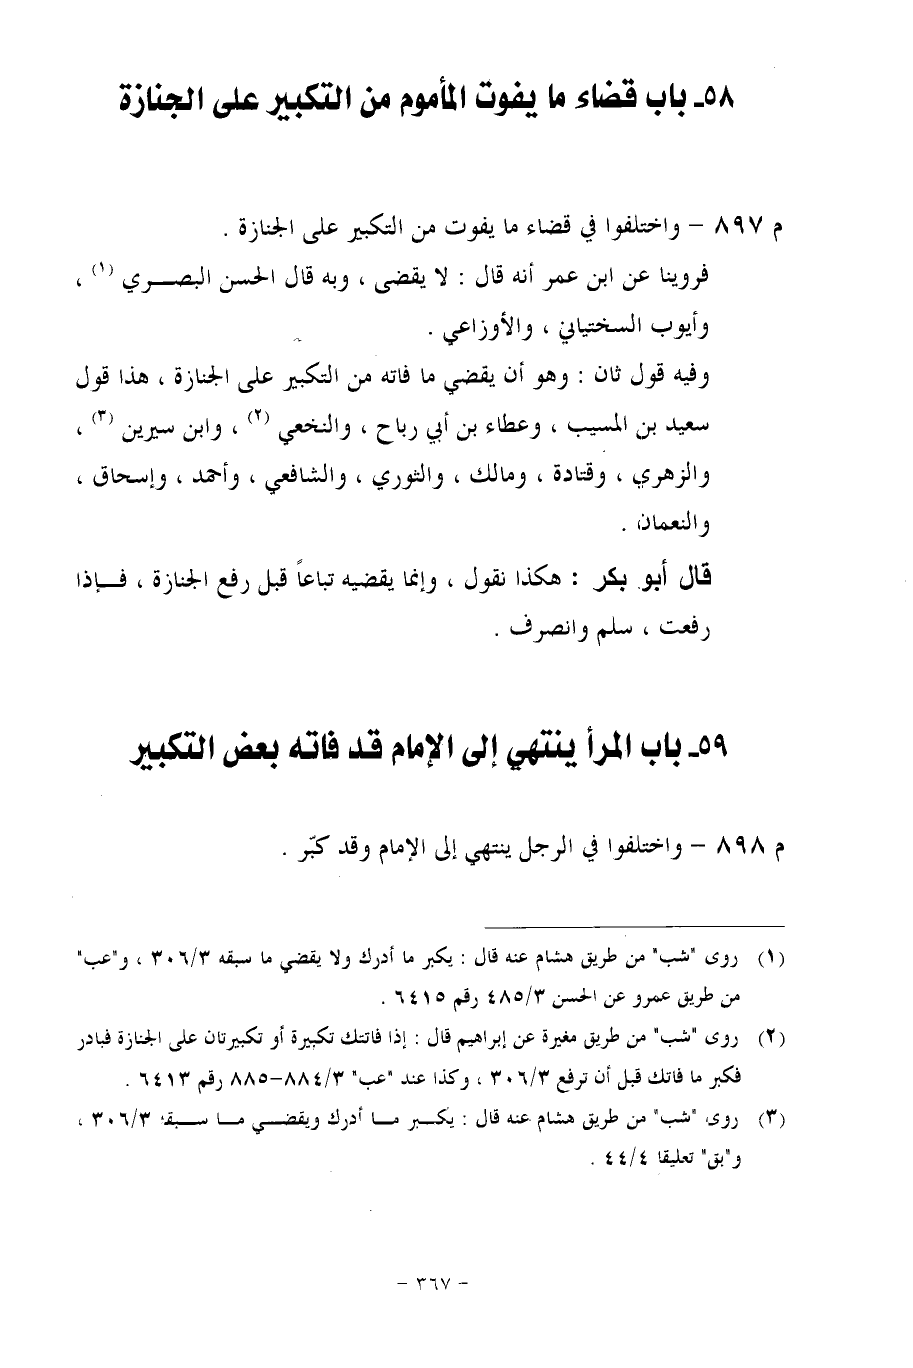 ٥٨ـ باب قضاء ما يفوت المأموم من التكبير على الجنازة
م ٨٩٧ – واختلفوا في قضاء ما يفوت من التكبير على الجنازة .
فروينا عن ابن عمر أنه قال : لا يقضى ، وبه قال الحسن البصـــري (١) ،
وأيوب السختياني ، والأوزاعي .
وفيه قول ثان : وهو أن يقضي ما فاته من التكبير على الجنازة ، هذا قول
سعيد بن المسيب ، وعطاء بن أبي رباح ، والنخعي (٢) ، وابن سيرين (٣) ،
والزهري ، وقتادة ، ومالك ، والثوري ، والشافعي ، وأحمد ، وإسحاق ،
والنعمان .
قال أبو بكر : هكذا نقول ، وإنما يقضيه تباعاً قبل رفع الجنازة ، فــإذا
رفعت ، سلم وانصرف .
٥٩ـ باب المرأ ينتهي إلى الإمام قد فاته بعض التكبير
م ٨٩٨ – واختلفوا في الرجل ينتهي إلى الإمام وقد كبّر .
(١) روى "شب" من طريق هشام عنه قال : يكبر ما أدرك ولا يقضي ما سبقه ٣٠٦/٣ ، و"عب"
من طريق عمرو عن الحسن ٤٨٥/٣ رقم ٦٤١٥ .
(٢) روى "شب" من طريق مغيرة عن إبراهيم قال : إذا فاتتك تكبيرة أو تكبيرتان على الجنازة فبادر
فكبر ما فاتك قبل أن ترفع ٣٠٦/٣ ، وكذا عند "عب" ٨٨٤/٣–٨٨٥ رقم ٦٤١٣ .
(٣) روى "شب" من طريق هشام عنه قال : يكـــبر مـــا أدرك ويقضـــي مـــا ســـبقه ٣٠٦/٣ ،
و"بق" تعليقا ٤٤/٤ .
– ٣٦٧ –